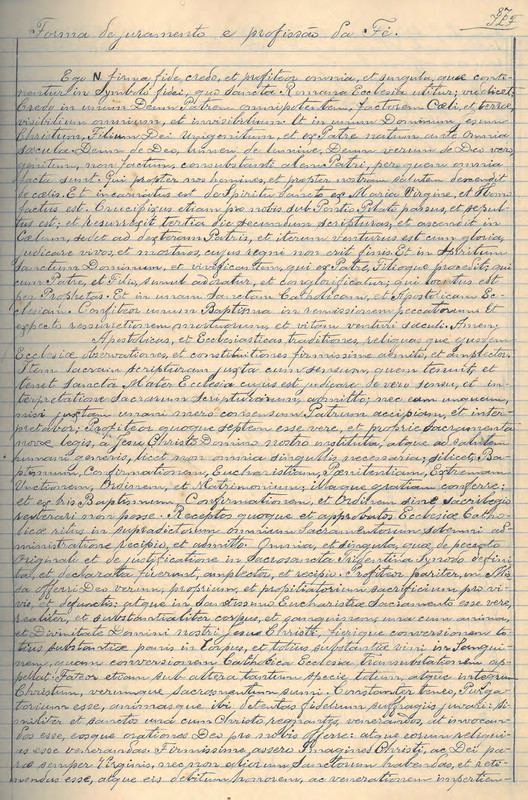 87
Forma de juramento e profissão da Fé.
Ego N firma fide, credo, et profiteor omnia, et singula, quæ conti-
nentur in Symbolo fidei, quo Sancta Romana Ecclesia utitur; videlicet:
Credo in unum Deum Patrem omnipotentem, factorem Cœli, et terræ
visibilium omnium, et invisibilium Et in unum Dominum, Jesum
Christum, Filium Dei Unigenitum, et ex Patre natum ante omnia
sæcula. Deum de Deo, lumen de lumine, Deum verum de Deo vero,
genitum, non factum, consubstantialem Patri, per quem omnia
facta sunt. Qui propter nos homines, et propter nostram salutem descendit
de cœlis. Et incarnatus est de Spiritu Sancto ex Maria Virgine, et Homo
factus est. Crucifixus etiam pro nobis sub Pontio Pilato passus, et sepul-
tus est; et resurrexit tertia die secundum scripturas, et ascendit in
Cœlum, sedet ad dexteram Patris, et iterum venturus est cum gloria,
judicare vivos, et mortuos, cujus regni non erit finis. Et in Spiritum
Sanctum Dominum, et vivificantem, qui ex Patre, Filioque procedit; qui
cum Patre, et Filio, simul adoratur, et conglorificatur; qui locutus est
per Prophetas. Et in unam Sanctam Catholicam, et Apostolicam Ec-
clesiam. Confiteor unum Baptisma in remissionem peccatorum Et
expecto resurrectionem mortuorum et vitam venturi sæculi. Amen.
Apostolicas, et Ecclesiasticas traditiones, reliquas que ejusdem
Ecclesiæ observationes, et constitutiones firmissime admito, et amplector.
Item sacram scripturam juxta eum sensum, quem tenuit, et
tenet sancta Mater Ecclesia cujus est judicare de vero sensu, et in-
terpretatione Sacrarum Scripturarum, admitto; nec eam unquam,
nisi juxta unanimem consensum Patrum accipiam, et inter-
pretabor; Profiteor quoque septem esse vere, et proprie Sacramenta
novæ legis, a Jesu Christo Domino nostro instituta, atque ad salutem
humani generis, licet non omnia singulis necessaria; silicet, Ba-
ptismum, Confirmationem, Eucharistiam, Pœnitentiam, Extremam
Unctionem, Ordinem, et Matrimonium; illaque gratiam conferre;
et ex his Baptismum Confirmationem, et Ordinem sine sacrilegio
reiterari non posse. Receptos quoque et approbatos Ecclesiæ Catho-
licæ ritus in supradictorum omnium Sacramentorum solemni ad-
ministratione recipio, et admitto. Omnia, et singula, quæ de peccato
originali et de justificatione in Sacrosancta Tridentina Synodo defini-
ta, et declarata fuerunt, amplector, et recipio. Profiteor pariter, in Mis-
sa offerri Deo verum, proprium, et propitiatorium sacrificium pro vi-
vis, et defunctis; atque in Sanctissimo Eucharistiæ Sacramento esse vere,
realiter, et substantialiter corpus, et sanguinem, una cum anima,
et Divinitate Domini nostri Jesu Christi, fierique conversionem to-
tius substantiæ panis in Corpus, et totius substantiæ vini in Sangui-
nem, quam conversionem Catholica Ecclesia transubstationem ap-
pellat. Fateor etiam sub altera tantum specie, totum, atque integrum
Christum, verumque Sacramentum sumi. Constanter teneo, Purga-
torium esse, animasque ibi detentas fidelium suffragiis juvari: si-
militer et sanctos una cum Christo regnantes, venerandos, et invocan-
dos esse, eosque orationes Deo pro nobis offerre: atque eorum reliqui-
as esse venerandas. Firmissime assero Imagines Christi, ac Dei pa-
ræ semper Virginis, nec non aliorum Sanctorum habendas, et reti-
nendas esse, atque eis debitum honorem, ac venerationem impertien-